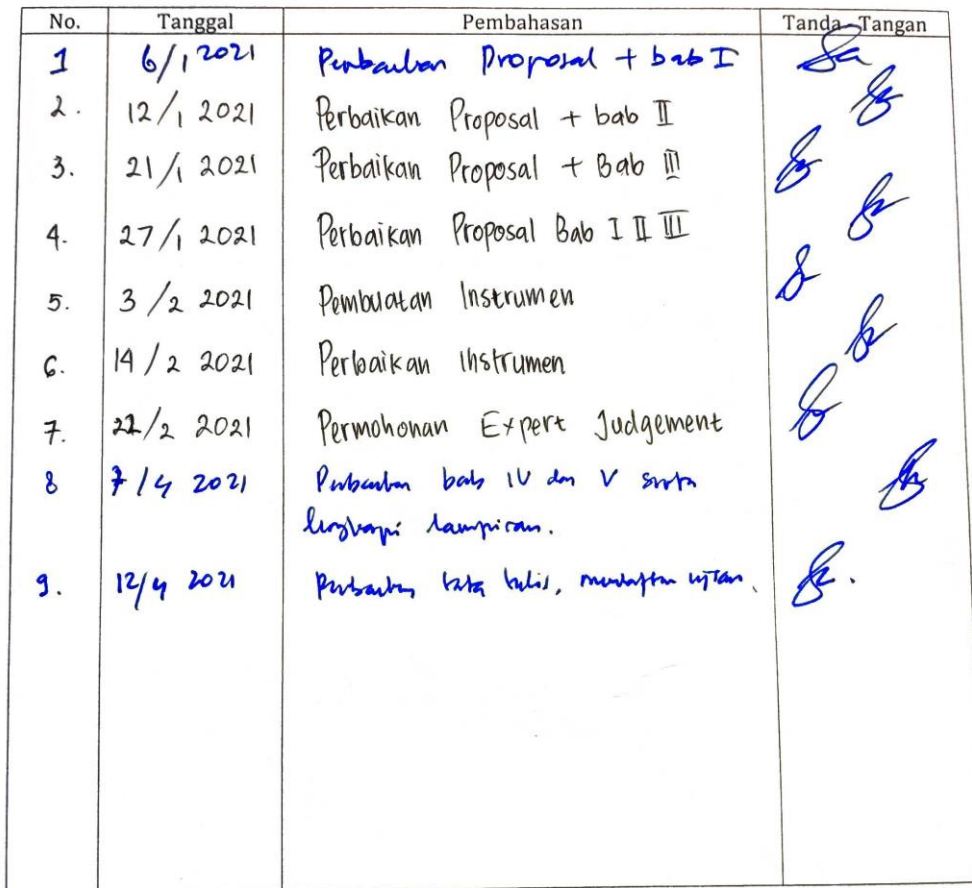 No. Tanggal Pembahasan Tanda Tangan
1 6/1 2021 Perbaikan Proposal + bab I
2. 12/1 2021 Perbaikan Proposal + bab II
3. 21/1 2021 Perbaikan Proposal + Bab III
4. 27/1 2021 Perbaikan Proposal Bab I II III
5. 3/2 2021 Pembuatan Instrumen
6. 14/2 2021 Perbaikan Instrumen
7. 22/2 2021 Permohonan Expert Judgement
8 7/4 2021 Perbaikan bab IV dan V serta
lengkapi lampiran.
9. 12/4 2021 Perbaikan tata tulis, mendaftar ujian.